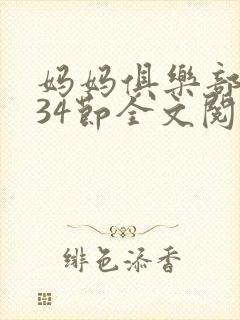 妈妈俱樂部
34節全文閱
緋色添香